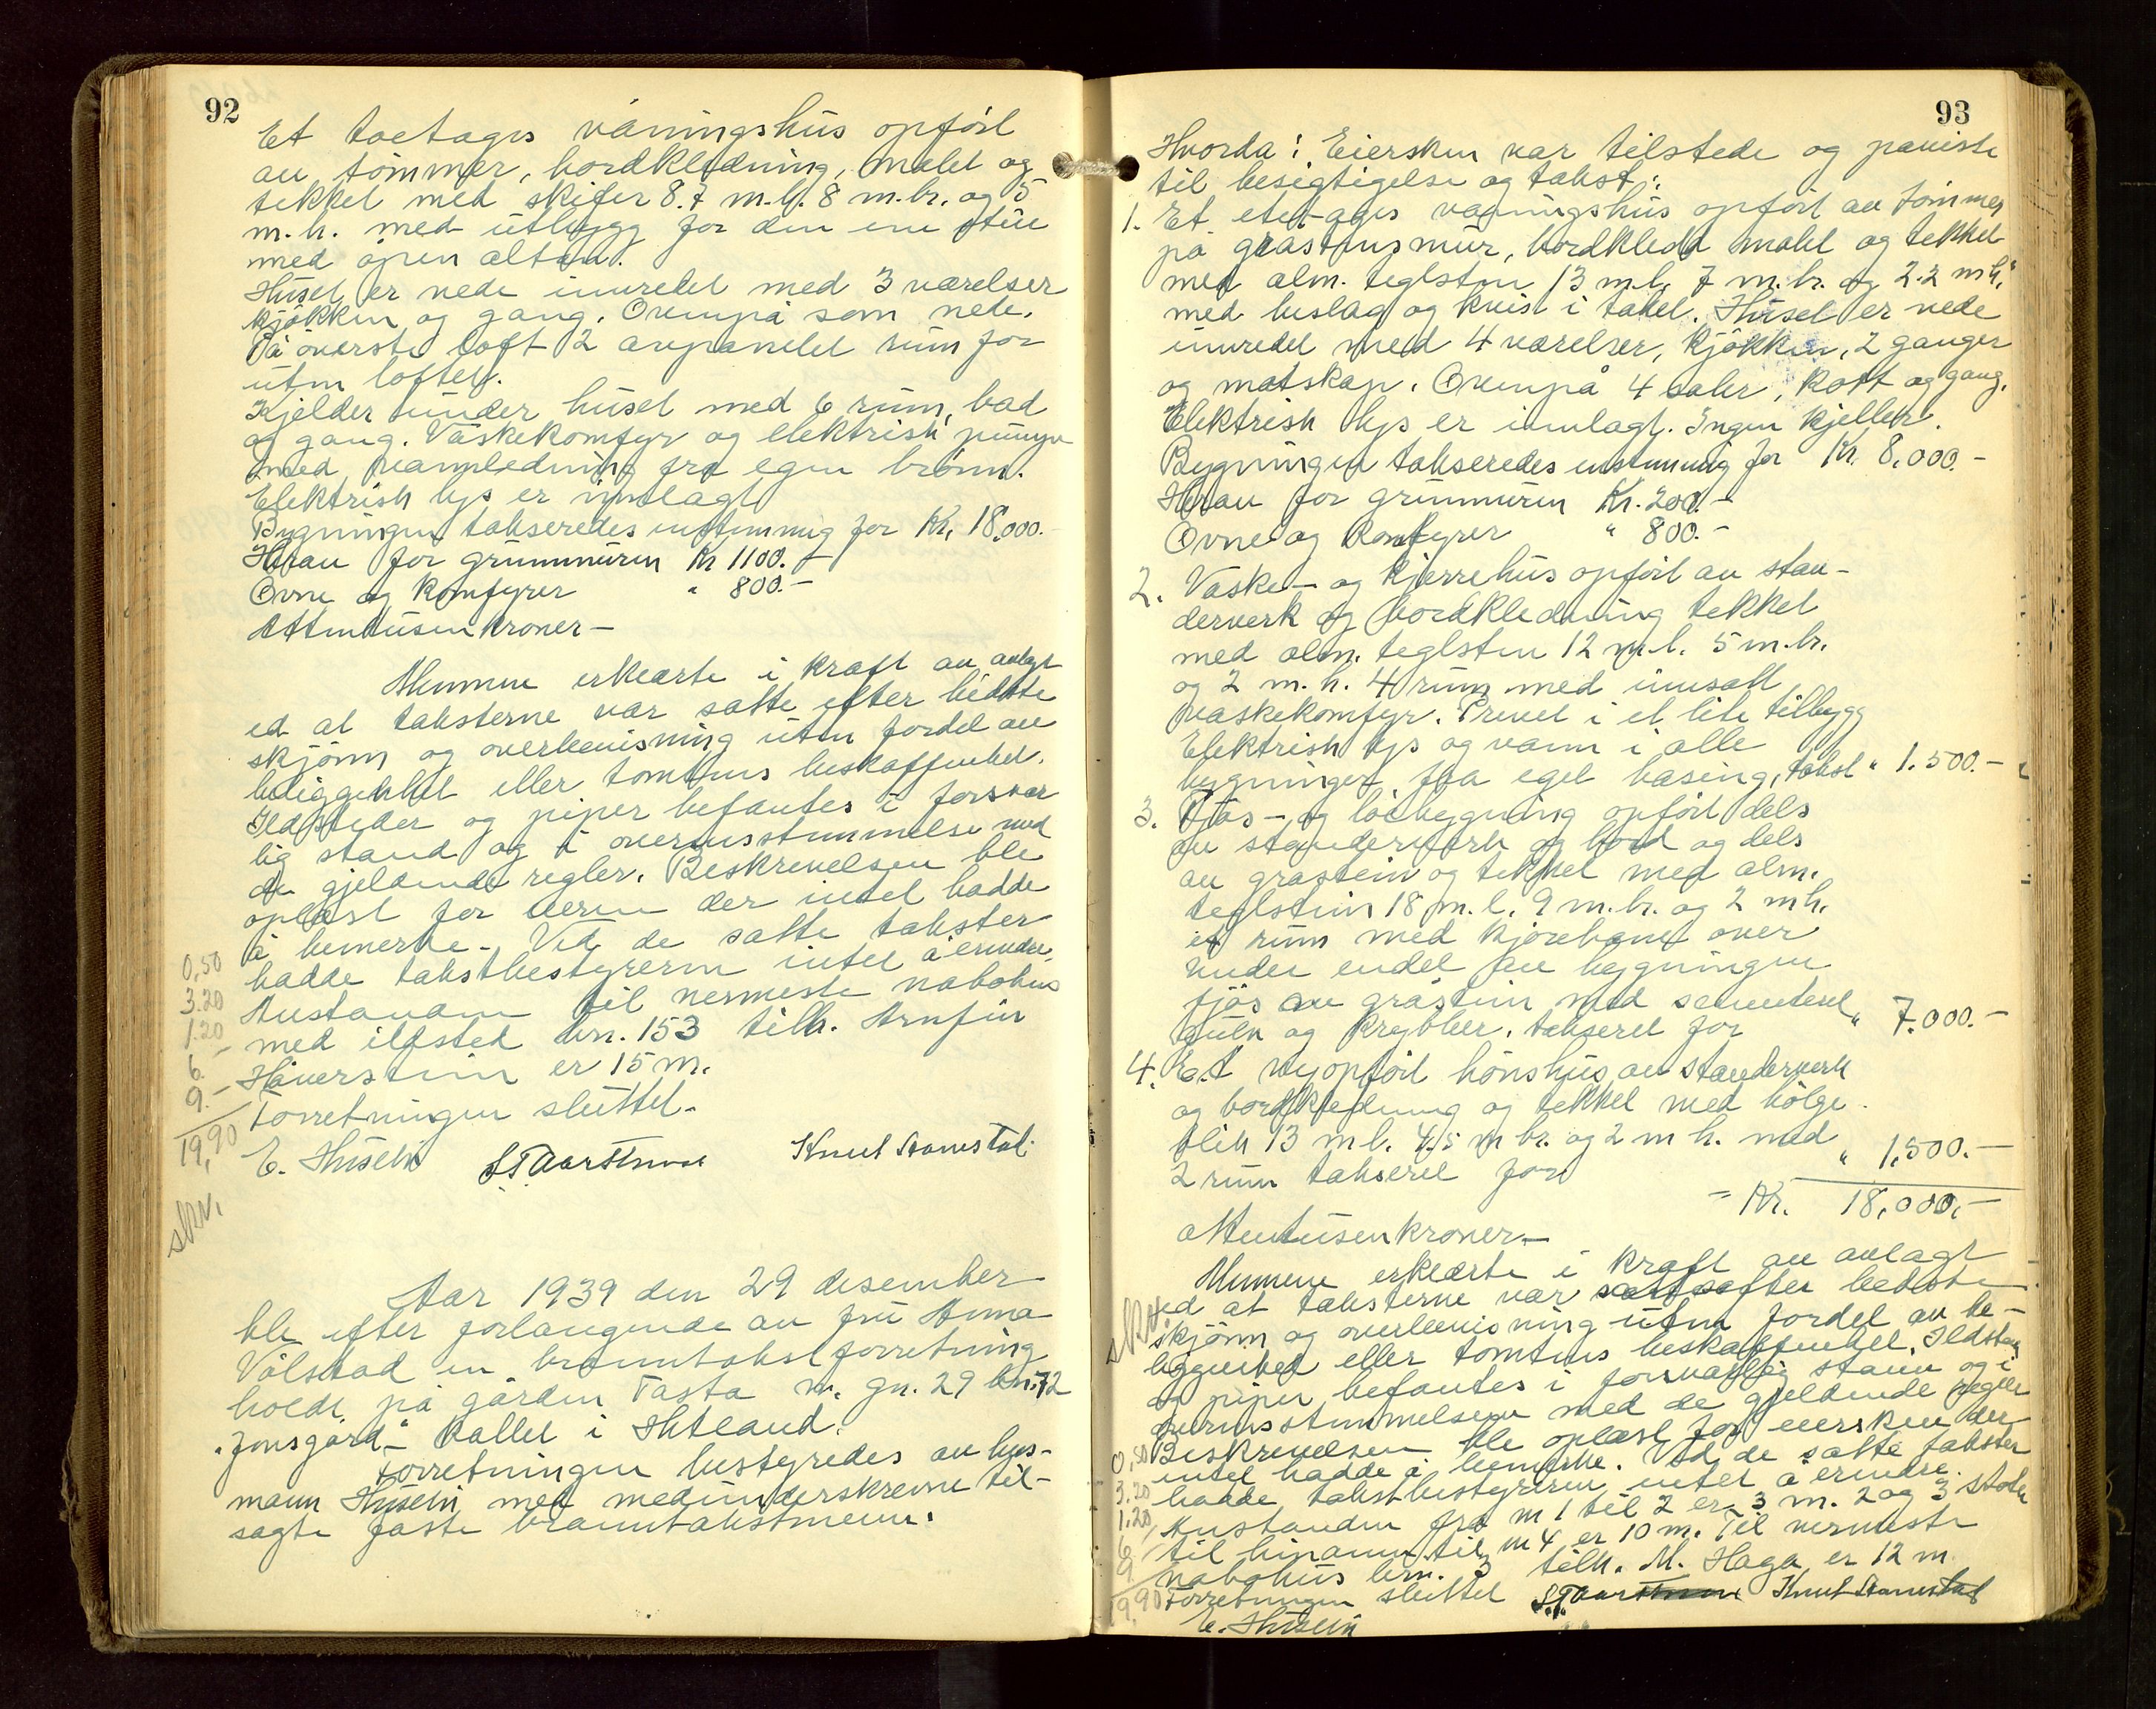 92
Et toetages våningshus opført
av tømmer, bordkledning, malet og
tekket med skifer 8.7 m.l. 8 m.br. og 5
m.h. med utbygg for den ene stue
med åpen altan.
Huset er nede innredet med 3 værelser
kjøkken og gang. Ovenpå som nede.
På øverste loft 2 avpanelet rum for
uten loftet.
Kjelder under huset med 6 rum, bad
og gang. Vaskekomfyr og elektrisk pumpe
med vannledning fra egen brønn.
Elektrisk lys er innlagt
Bygningen takseredes enstemmig for Kr. 18,000.-
Herav for grunnmuren Kr 1100.-
Ovne og komfyrer " 800.-
Attentusen kroner-
Mennene erklærte i kraft av avlagt
ed at taksterne var satte efter bedste
skjønn og overbevisning uten fordel av
beliggenhet eller tomtens beskaffenhet.
Ildsteder og piper befantes i forsvar
lig stand og i overensstemmelse med
de gjeldende regler. Beskrevelsen ble
oplæst for eieren der intet hadde
å bemerke. Ved de satte takster
hadde takstbestyreren intet å erindre.
Avstanden til nermeste nabohus
med ildsted brn. 153 tilh. Arnfin
Håverstein er 15 m.
Forretningen sluttet.
E. Husebø S. T. Aarstrand Knut Stamestøl
0,50
3.20
1.20
6.-
9.-
19,90
skr.
Aar 1939 den 29 desember
ble efter forlangende av fru Anna
Vølstad en branntakstforretning
holdt på gården Tasta m. gn. 29 bn. 72
"Jonsgård" kallet i Hetland.
Forretningen bestyredes av lens-
mann Husebø med medunderskrevne til-
sagte faste branntakstmenn.
93
Hvorda: Eiersken var tilstede og påviste
til besigtigelse og takst:
1. Et etetages våningshus opført av tømmer
på gråstensmur, bordkledd malet og tekket
med alm. teglsten 13 m.l. 7 m.br. og 2.2 m.h.
med beslag og kvist i taket. Huset er nede
innredet med 4 værelser, kjøkken, 2 ganger
og matskap. Ovenpå 4 saler, kott og gang.
Elektrisk lys er innlagt. Ingen kjeller.
Bygningen takseredes enstemmig for Kr. 8,000.-
Herav for grunnmuren Kr. 200.-
Ovne og komfyrer " 800.-
2. Vaske- og kjerrehus opført av stan-
derverk og bordkledning tekket
med alm. teglsten 12 m.l. 5 m.br.
og 2 m.h. 4 rum med innsatt
vaskekomfyr. Privet i et lite tilbygg
Elektrisk lys og vann i alle
bygninger fra eget basing, takst " 1.500.-
3. Fjøs- og løebygning opført dels
av standerverk og bord og dels
av gråstein og tekket med alm.
teglstein 18 m.l. 9 m.br. og 2 m.h.
et rum med kjørebane over
Under endel av bygningen
fjøs av gråstein med sementesel
gulv og krybber. takseret for " 7.000.-
4. Et nyopført hønshus av standerverk
og bordkledning og tekket med bølge-
blik 13 m l. 4,5 m br. og 2 m h. med
2 rum takseret for " 1,500.-
= Kr. 18,000,-
Attentusen kroner.-
Mennene erklærte i kraft av avlagt
ed at taksterne var satt efter bedste
skjønn og overbevisning uten fordel av be-
liggenhet eller tomtens beskaffenhet. Ildsteder
og piper befantes i forsvarlig stann og i
overensstemmelsen med de gjeldende regler
Beskrevelsen ble oplæst for eiersken der
intet hadde å bemerke. Ved de satte takster
hadde takstbestyreren intet å erindre.
Avstanden fra nr 1 til 2 er 3 m. 2 og 3 støter
til hinannen til nr 4 er 10 m. Til nermeste
nabohus brn. 3 tilh. M. Haga er 12 m.
Forretningen sluttet S. T. Aarstrand Knut Stamestøl
E. Husebø
skr.
0,50
3.20
1.20
6.-
9.
19,90